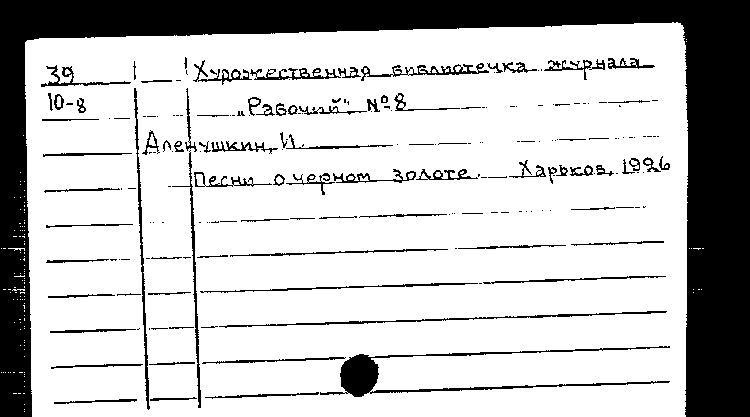 39 Художественная библиотечка журнала
10-8 „Рабочий“. № 8
Аленушкин, И.
Песни о черном золоте. Харьков, 1926